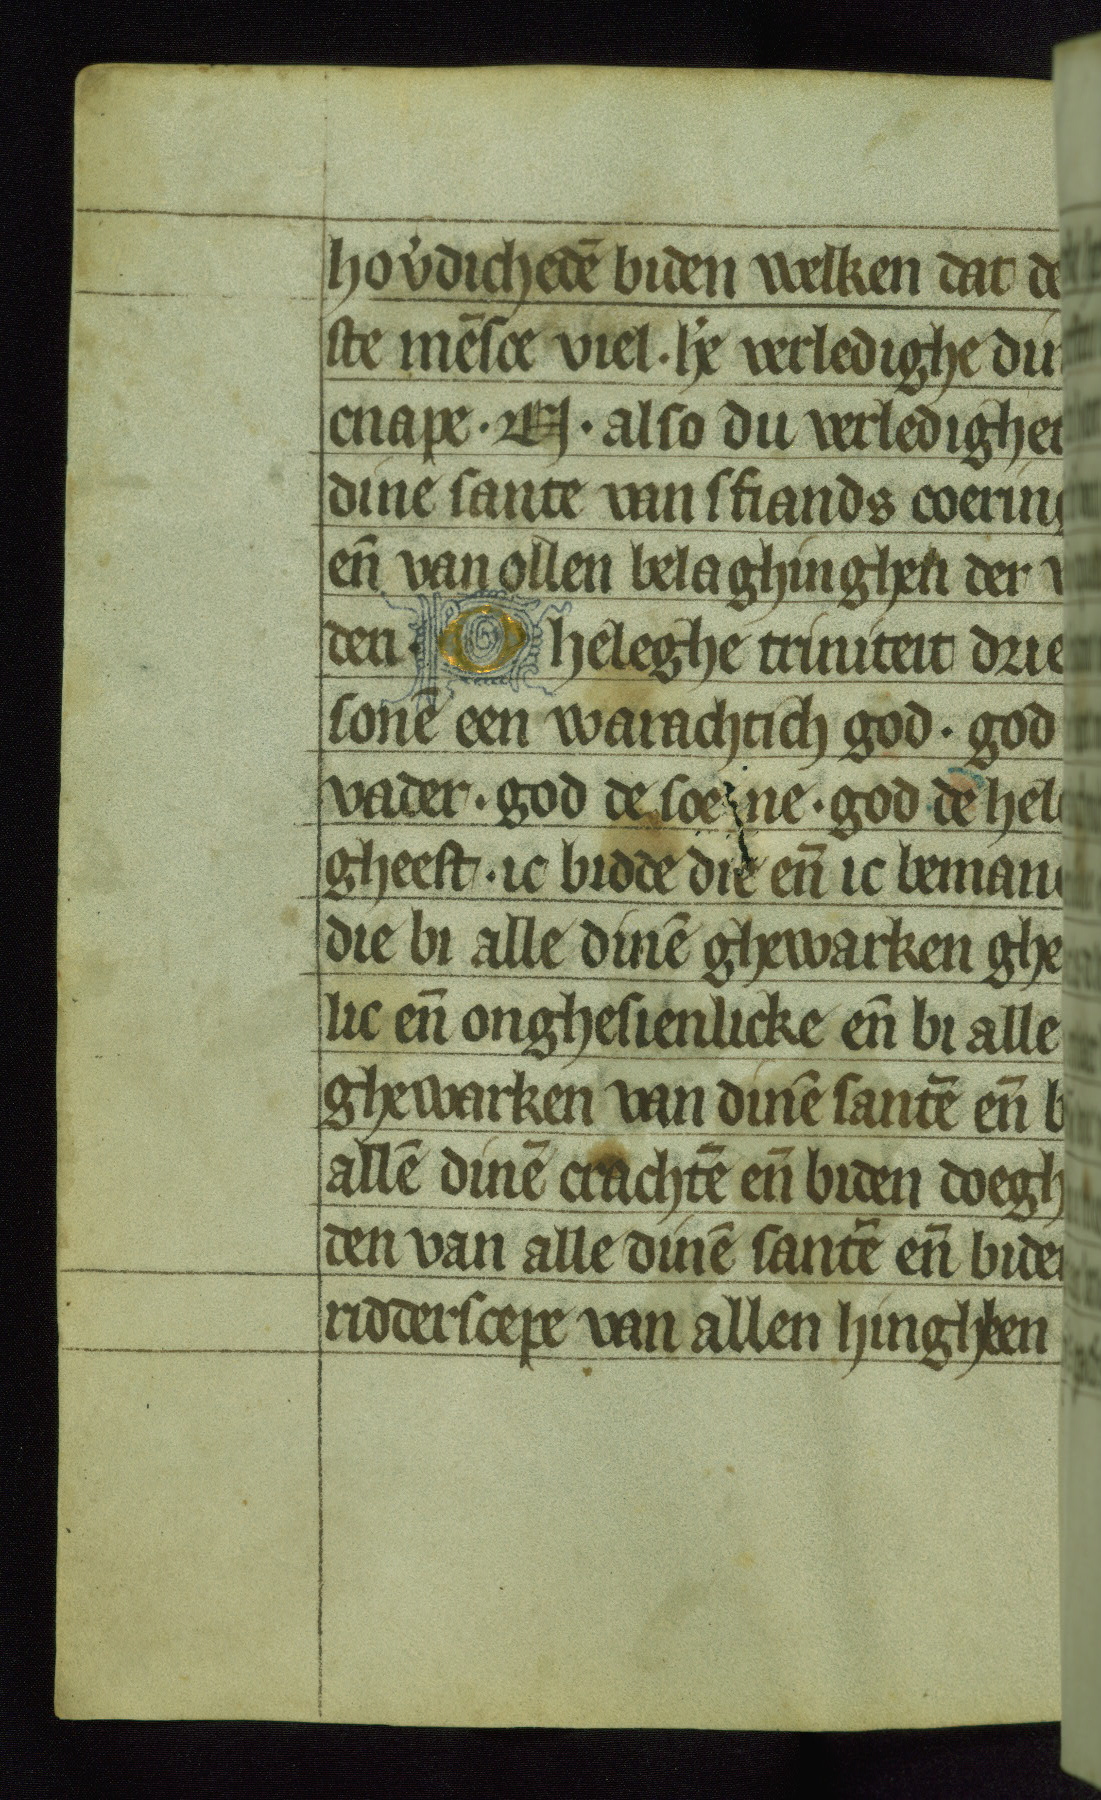 hov͛dichedē biden welken dat de
ste mēsce viel · lꝰe verledighe din
cnape · Mͣ · also du verledighet
dine sante van sfiands coering
en̄ van ollen belaghinghen der
den · O heleghe triniteit drie
sonē een warachtich god · god
vader · god de soe ne · god de hele
gheest · ic bidde die en̄ ic beman
die bi alle dinē ghewarken ghe
lic en̄ onghesienlicke en̄ bi alle
ghewarken van dinē santē en̄ b
allē dinē crachtē en̄ biden doegh
den van alle dinē santē en̄ biden
ridderscepe van allen hingheen